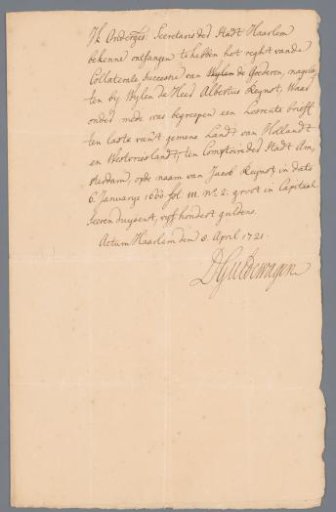 Ik Ondergesz: Secretaris der Stadt Haerlem
bekenne ontfangen te hebben het reght vande
Collaterale Successie van Wylen de Goederen, nagela
ten by Wylen de Heer Albertus Reynst, Waar
onder mede was begrepen een Losrente brieff
ten laste van't gemene Landt van Hollandt
en Westvrieslandt, ten Comptoire der Stadt Am,
sterdam, opde naam van Jacob Reynst in dato
6. January 1660 fol m. No. 2: groot in Capitaal
seven duysent, vyf hondert guldens.
Actum Haarlem den 8. April 1721.
D Guldewagen